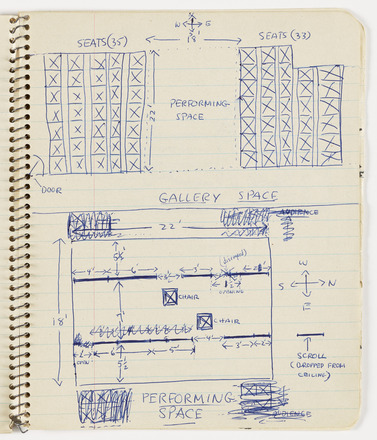 N
W E
S
18'
SEATS (35)
SEATS (33)
22'
PERFORMING
SPACE
DOOR
GALLERY SPACE
AUDIENCE
22'
5½'
4' 6' 5'
OPENING
W
S N
E
CHAIR
7'
18'
CHAIR
SCROLL
(DROPPED FROM
CEILING)
2' 6' 5' 4' 3' 2'
OPEN
5½'
PERFORMING
SPACE
AUDIENCE